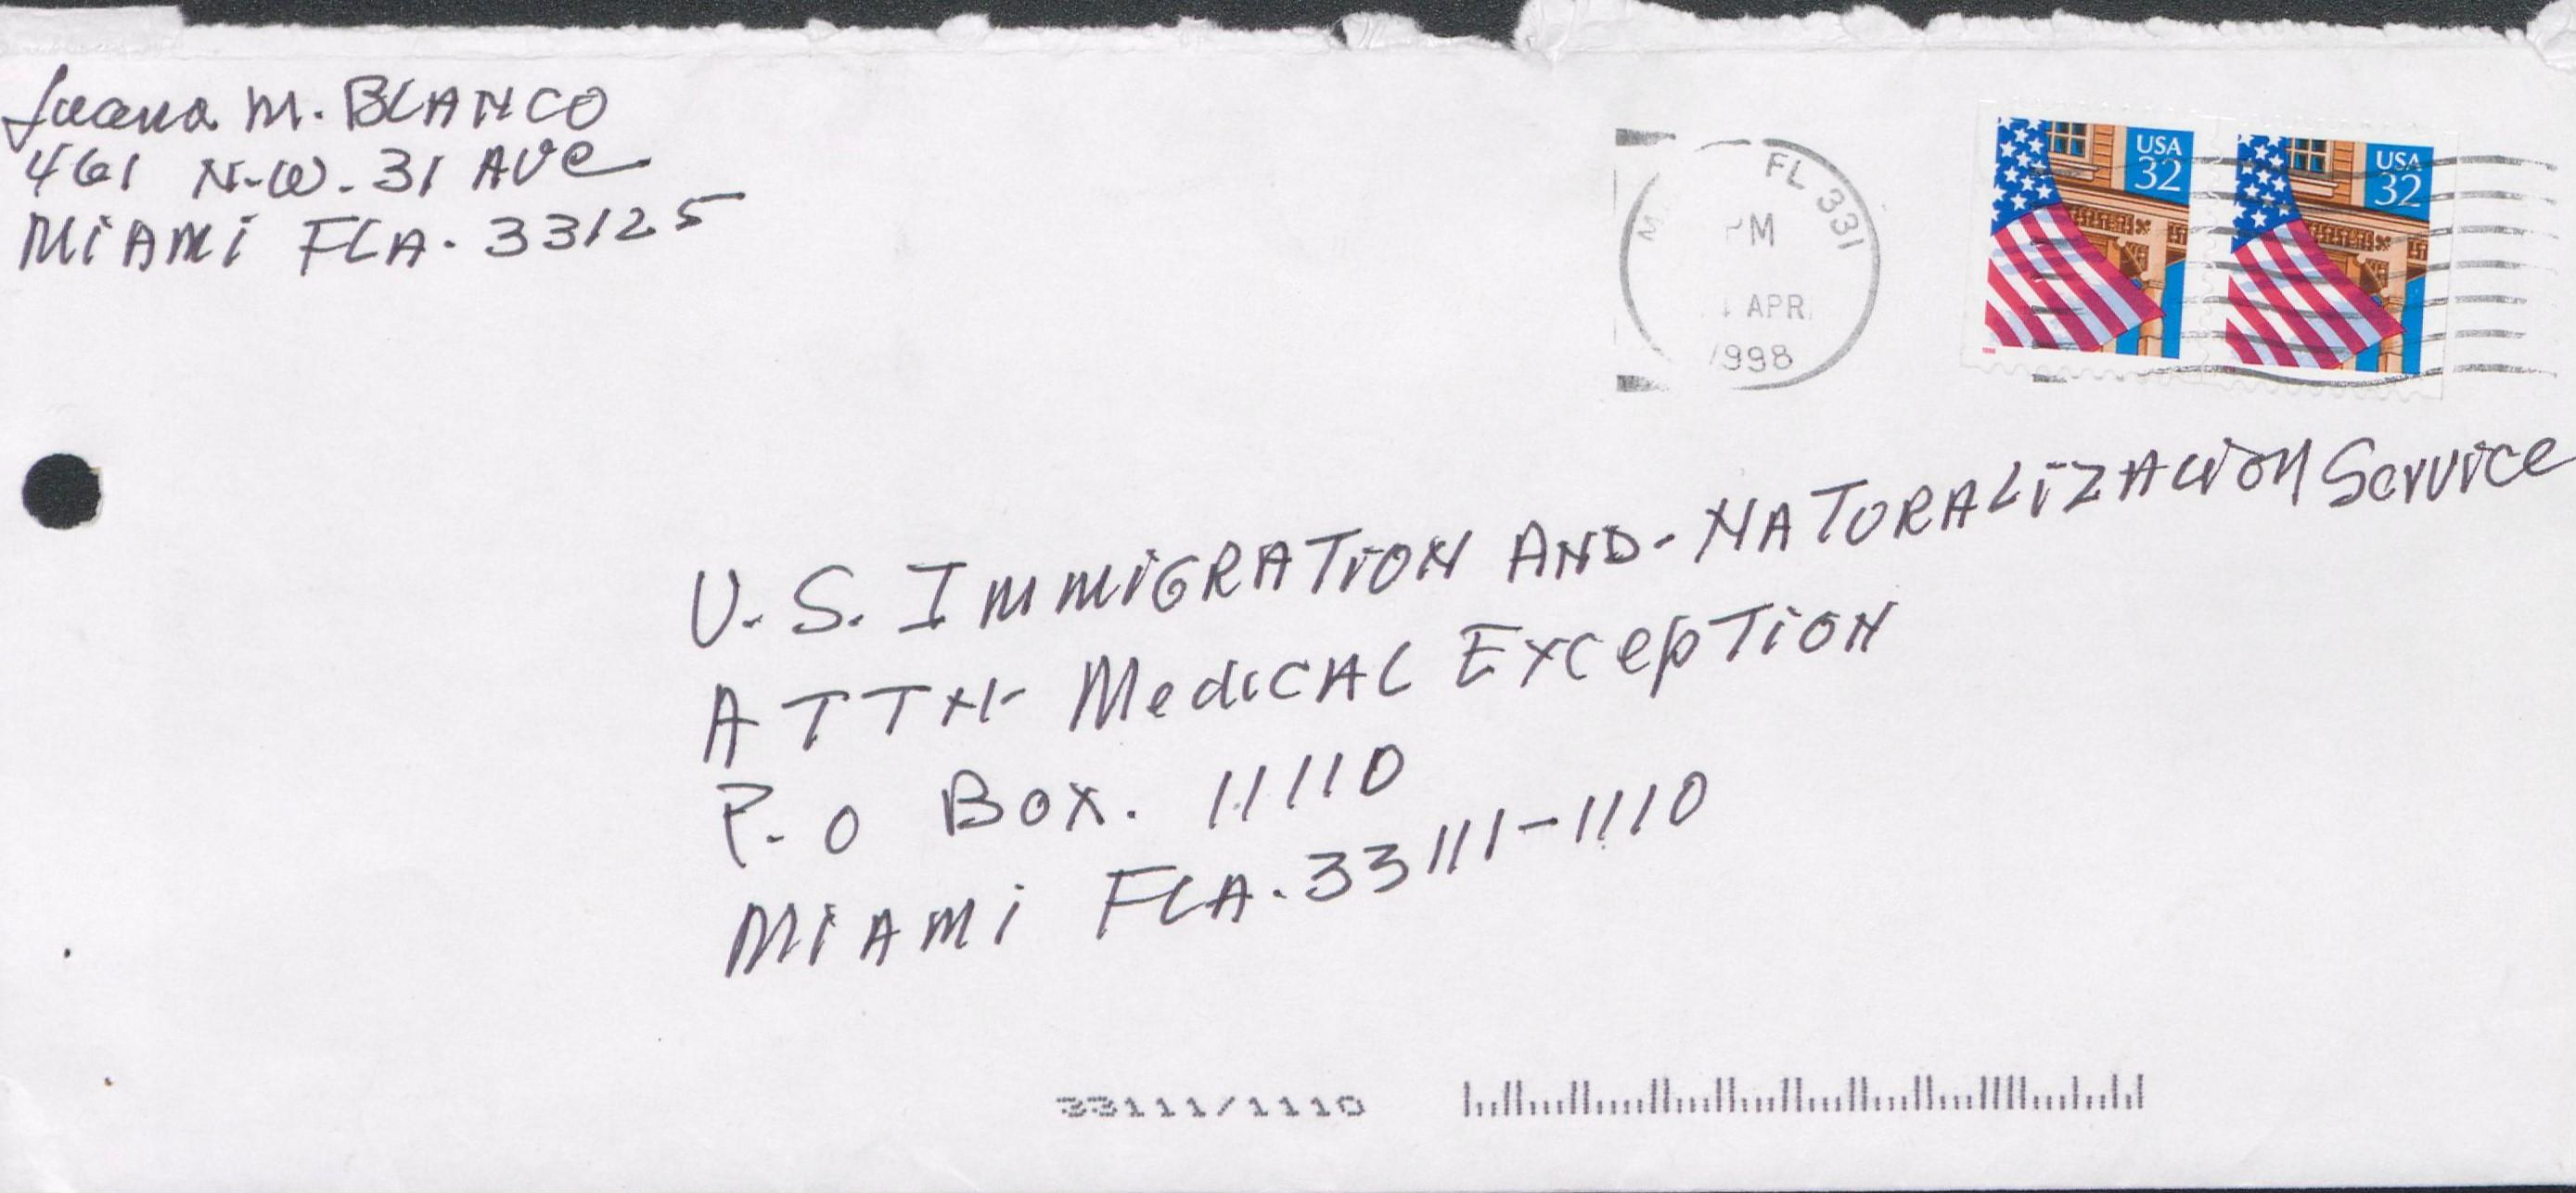 Juana M. BLANCO
461 N.W. 31 AVe
MiAMi FLA. 33125
FL 331
PM
APR
1998
USA
32
USA
32
U.S. IMMiGRATiON AND-NATURALiZACiON Service
ATTN- MedicAL ExcepTiON
P.O Box. 11110
MiAMi FLA. 33111-1110
33111/1110